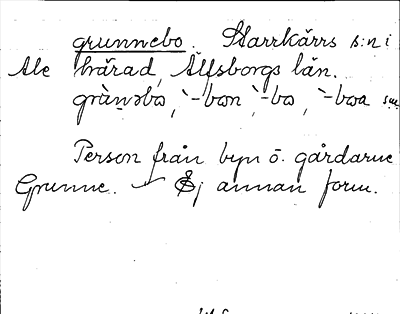 grunnebo. Starrkärrs s:n i
Ale härad, Älfsborgs län.
grùnəbo, `-bon `-bo, `-boa sm.
Person från byn o. gårdarne
Grunne. — Ej annan form.